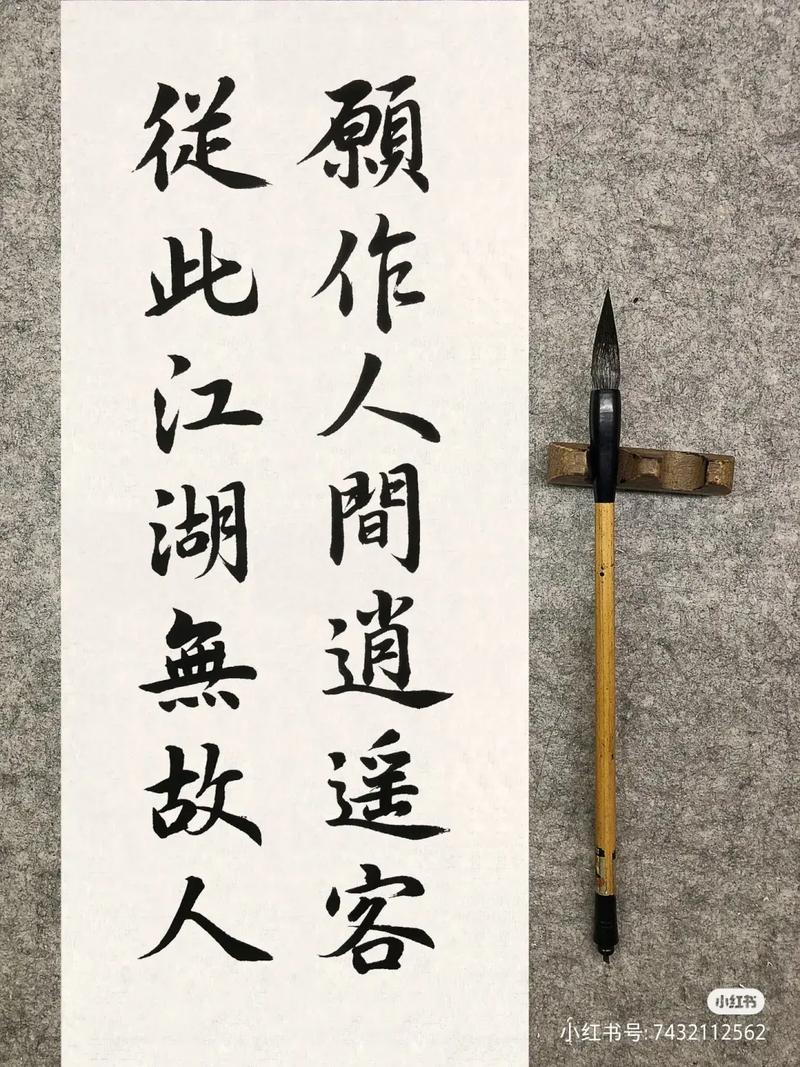 願作人間逍遥客
從此江湖無故人
小红书
小红书号:7432112562